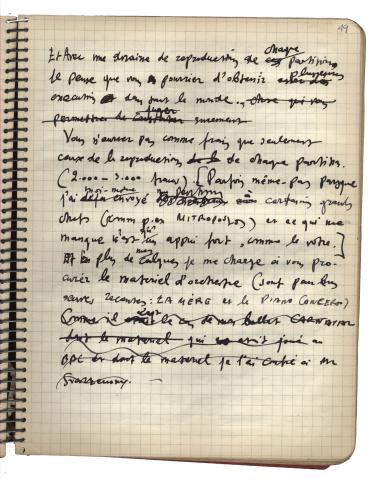 49
Et Avec une dizaine de reproductions de chaque partition
Je pense que vous pourriez d'obtenir plusieurs
executions dans tout le monde...
permettre de juger surement
Vous n'aurez pas comme frais que seulement
ceux de la reproduction de chaque partition.
(2.000 - 3.000 francs) [Parfois même pas parsque
j'ai moi-même envoyé mes partitions à certains grands
chefs (comm p.ex MITROPOULOS) et ce qui me
manque c'est un appui fort, comme le votre.]
Et en plus de mes calques je me charge à vous pro-
curér le materiel d'orchestre (sont pour les
œuvres recentes: LA MÈRE et le PIANO CONCERTO)
Comme il est le cas de mon ballet CARNAVAL
dont le materiel qui avait joué au
OPC et dont le materiel je l'ai à Mr